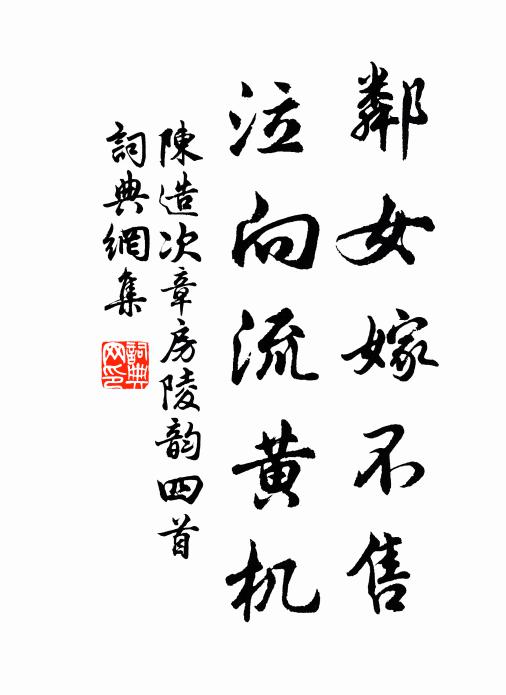 鄰女嫁不售
泣向流黄机
陳造次章房陵韵四首
詞典網集
詞典网印